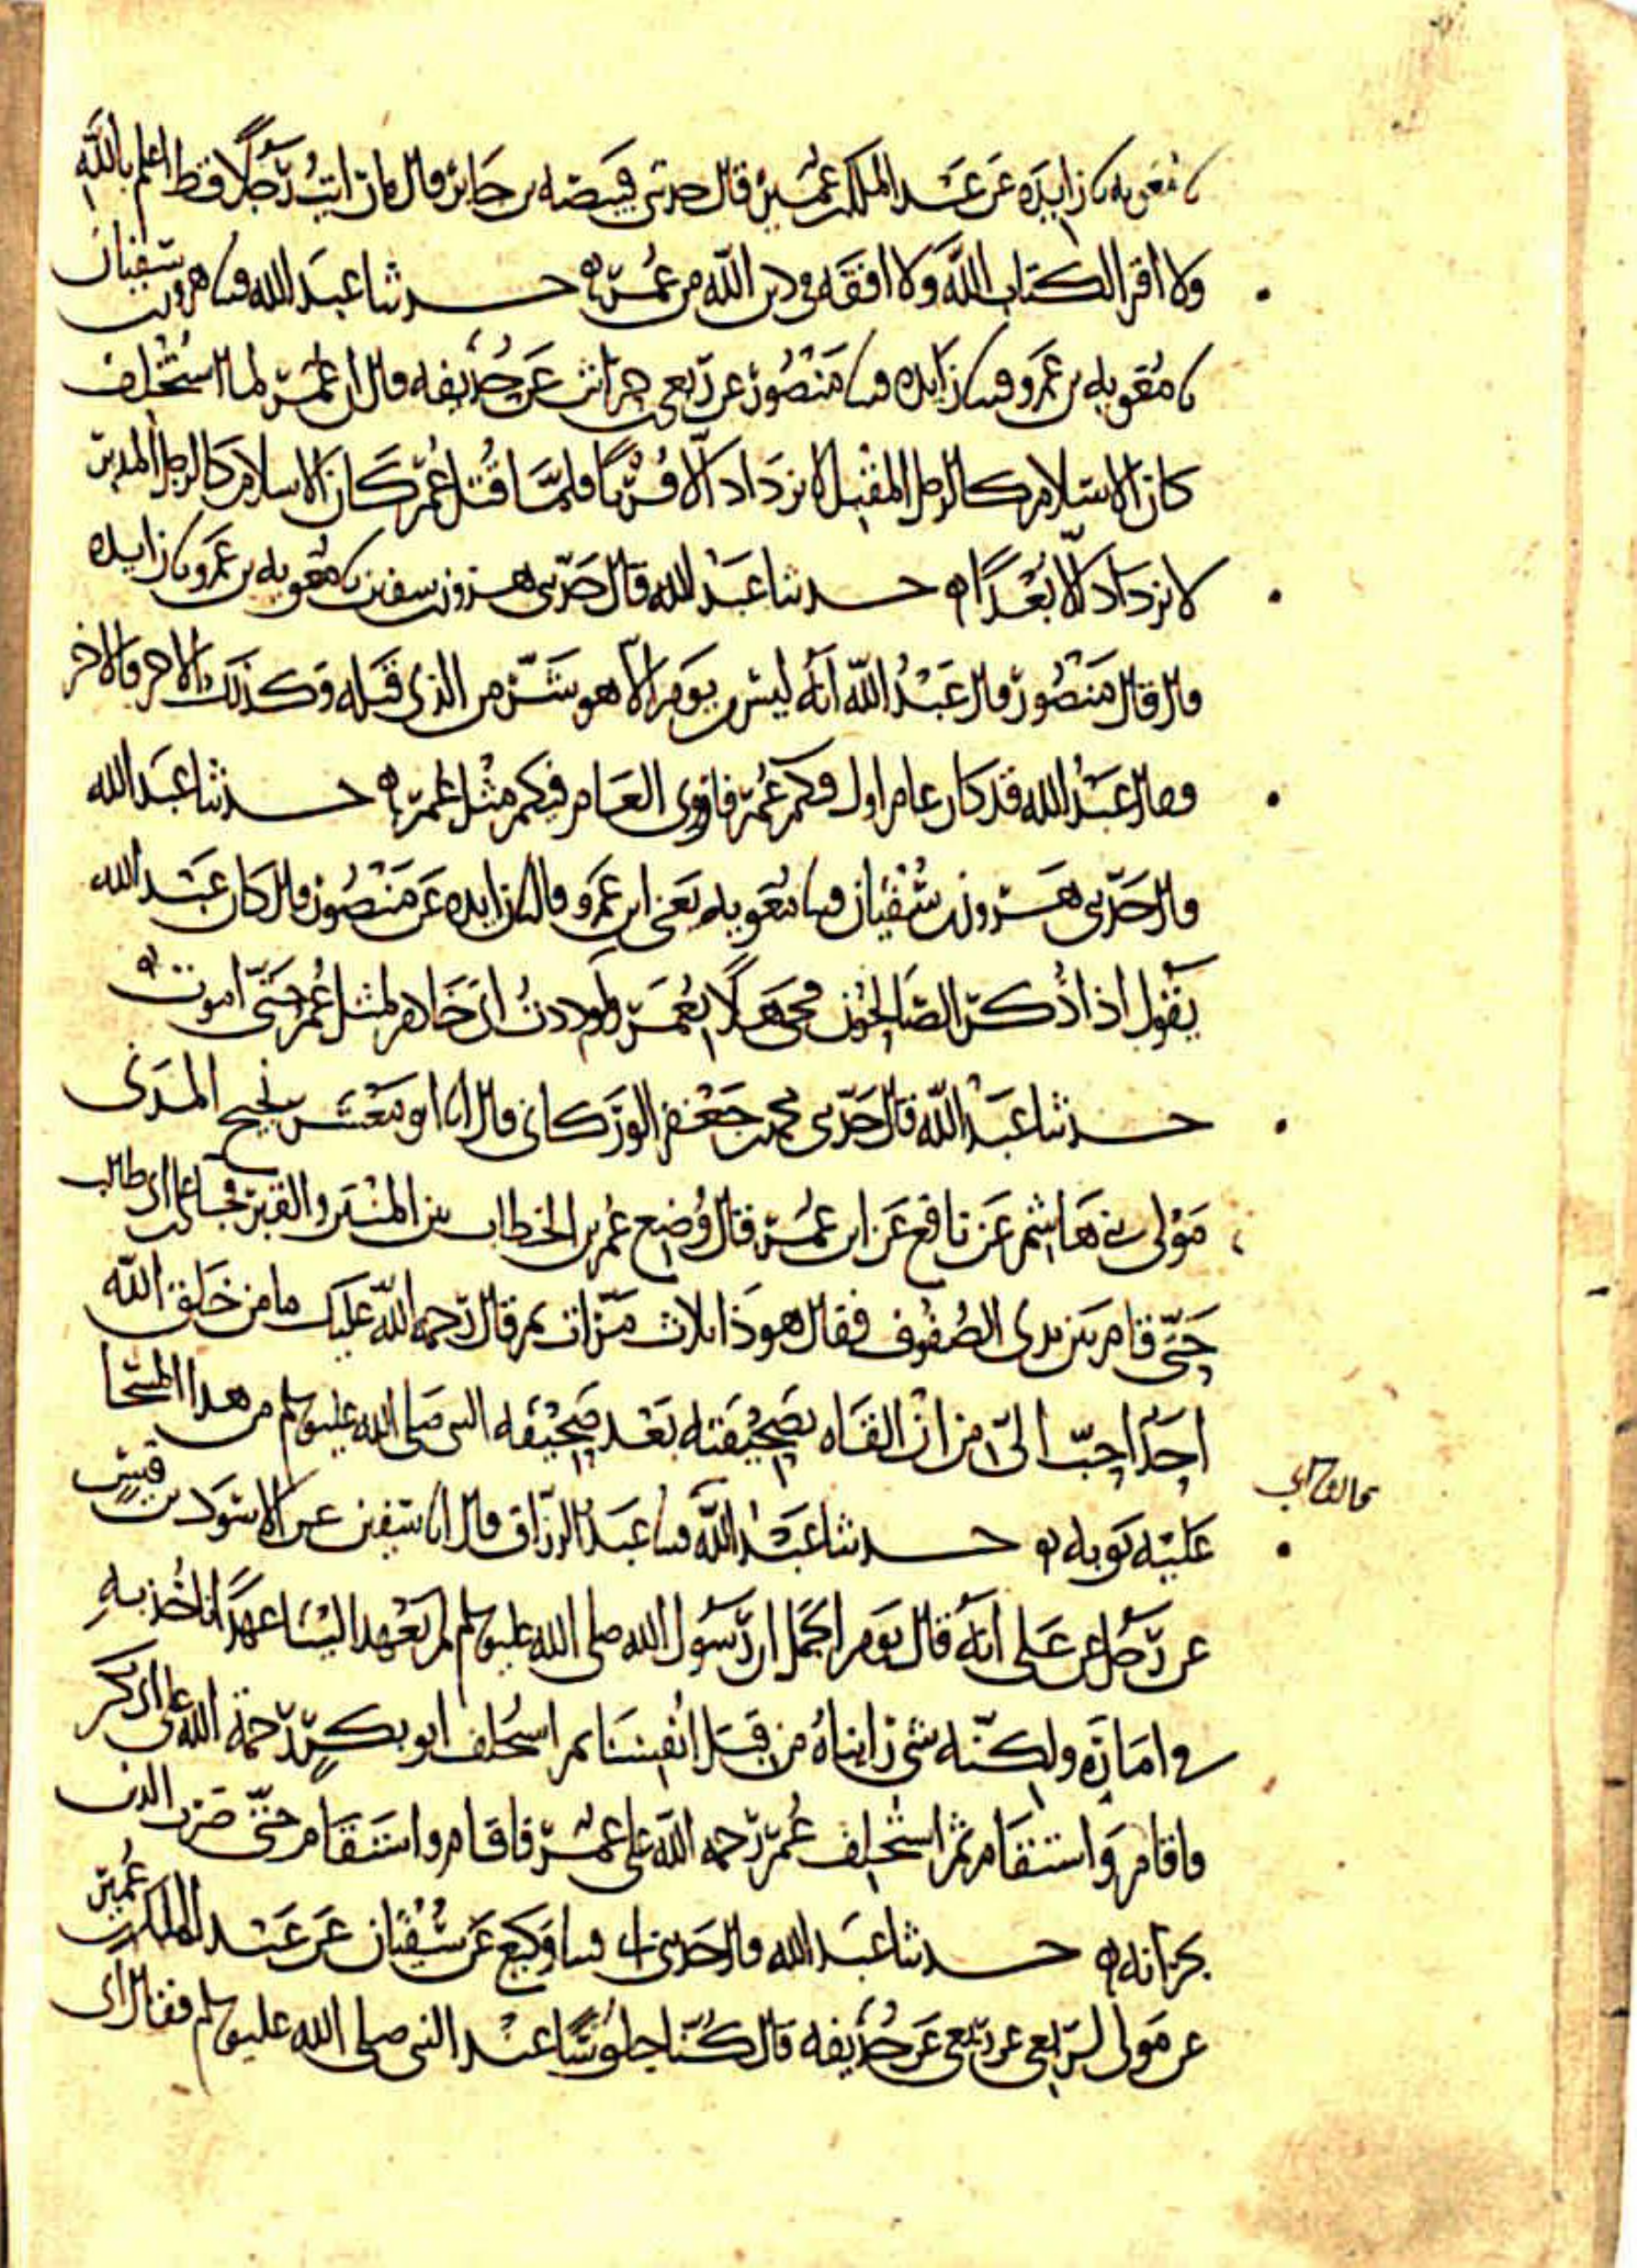 نا معويه نا زايدة عن عبد الملك بن عمير قال حدثني قبيصه بن جابر قال ما رايت رجلا قط اعلم بالله
ولا اقرا لكتاب الله ولا افقه في دين الله من عمر ه حدثنا عبد الله قثنا هرون بن سفيان
نا معويه بن عمرو قثنا زايده قثنا منصور عن ربعي بن حراش عن حذيفه قال ان عمر لما استخلف
كان الاسلام كالرجل المقبل لا يزداد الا قربا فلما قتل عمر كان الاسلام كالرجل المدبر
لا يزداد الا بعدا ه حدثنا عبد الله قال حدثني هرون بن سفين نا معويه بن عمرو نا زايده
قال قال منصور قال عبد الله انه ليس يوم الا هو شر من الذي قبله وكذلك الاخر والاخر
وقال عبد الله قد كان عام اول فيكم عمر فاروى العام فيكم مثل عمر ه حدثنا عبد الله
قال حدثني هرون بن سفيان قثنا معويه يعني ابن عمرو قال نا زايده عن منصور قال كان عبد الله
يقول اذا ذكر الصالحون فحي هلا بعمر ولوددت ان خادم لمثل عمر حتى اموت ه
حدثنا عبد الله قال حدثني محمد بن جعفر الوركاني قال انا ابو معشر نجيح المدني
مولى بني هاشم عن نافع عن ابن عمر قال وضع عمر بن الخطاب بين المنبر والقبر فجا علي بن ابي طالب
حتى قام بين يدي الصفوف فقال هو ذا ثلاث مرات ثم قال رحمه الله عليك ما من خلق الله
احد احب الي من ان القاه بصحيفته بعد صحيفه النبي صلى الله عليه وسلم من هذا المسجا
عليه ثوبه ه حدثنا عبد الله قثنا عبد الرزاق قال انا سفين عن الاسود بن قيس
عن رجل عن علي انه قال يوم الجمل ان رسول الله صلى الله عليه وسلم لم يعهد الينا عهدا ناخذ به
في امارة ولكنه شي رايناه من قبل انفسنا ثم استخلف ابو بكر رحمة الله على ابي بكر
فاقام واستقام ثم استخلف عمر رحمه الله على عمر فاقام واستقام حتى ضرب الدين
بجرانه ه حدثنا عبد الله قال حدثني ابي قثنا وكيع عن سفيان عن عبد الملك بن عمير
عن مولى لربعي عن ربعي عن حذيفه قال كنا جلوسا عند النبي صلى الله عليه وسلم فقال اني